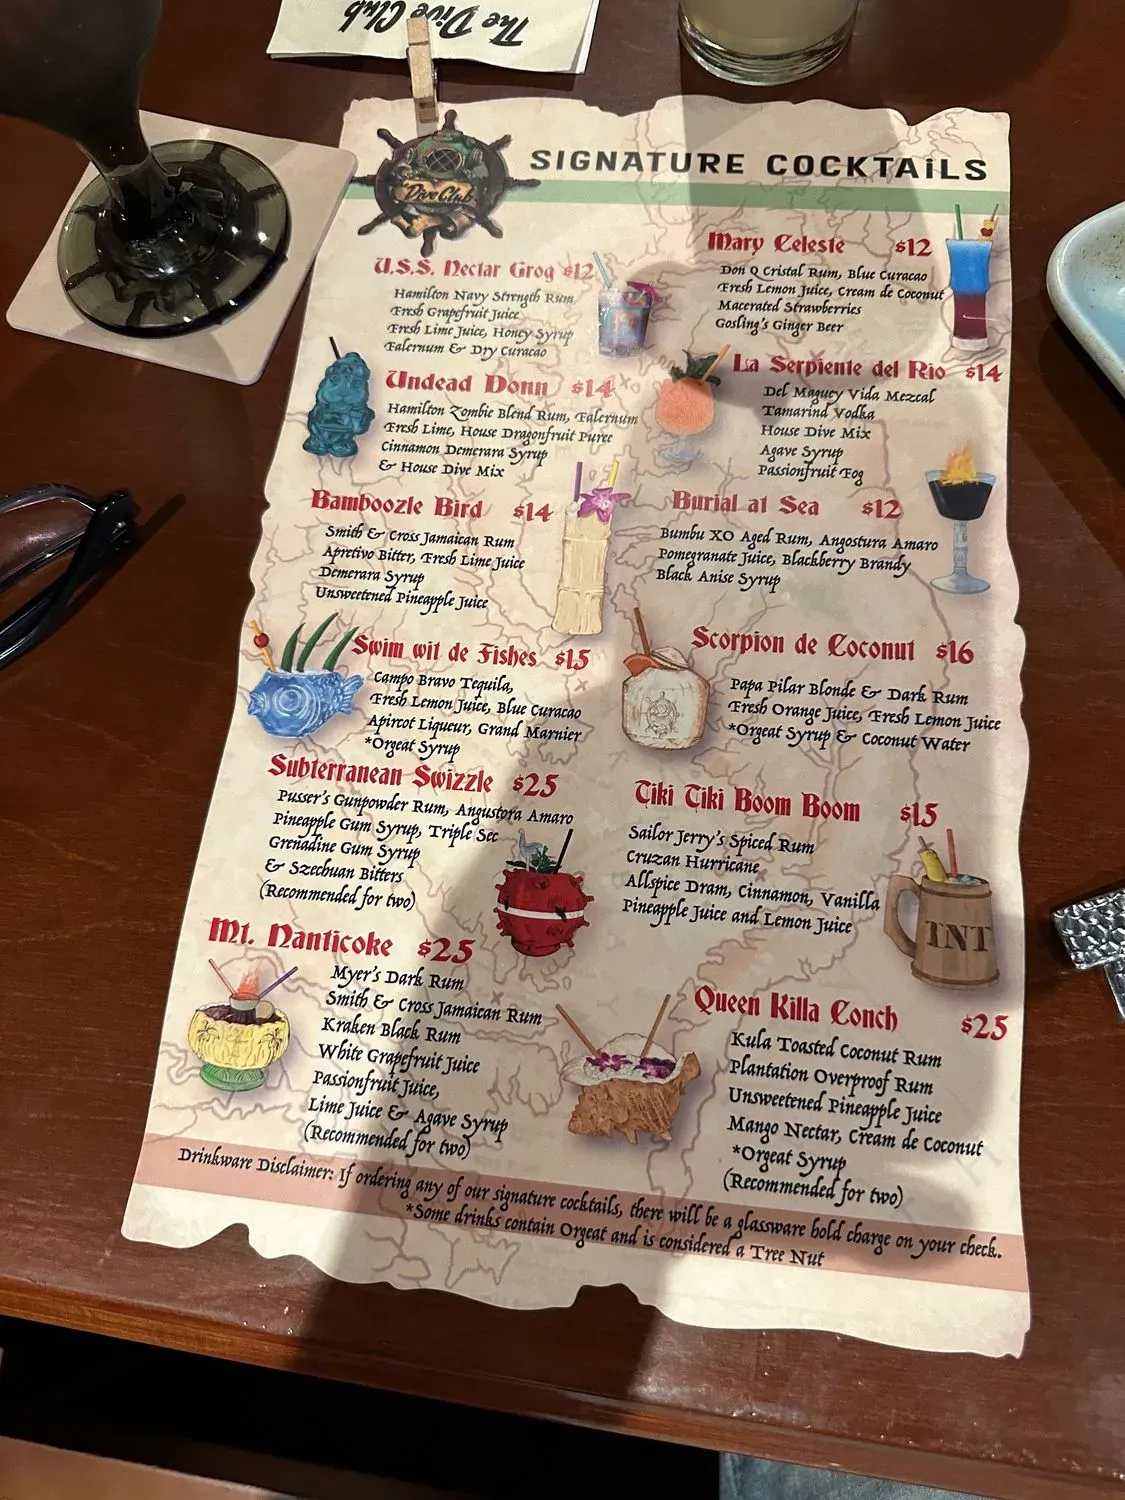 The Dive Club
SIGNATURE COCKTAILS
Dive Club
U.S.S. Nectar Grog $12
Hamilton Navy Strength Rum
Fresh Grapefruit Juice
Fresh Lime Juice, Honey Syrup
Falernum & Dry Curacao
Undead Donn $14
Hamilton Zombie Blend Rum, Falernum
Fresh Lime, House Dragonfruit Puree
Cinnamon Demerara Syrup
& House Dive Mix
Bamboozle Bird $14
Smith & Cross Jamaican Rum
Apretivo Bitter, Fresh Lime Juice
Demerara Syrup
Unsweetened Pineapple Juice
Swim wit de Fishes $15
Campo Bravo Tequila,
Fresh Lemon Juice, Blue Curacao
Apircot Liqueur, Grand Marnier
*Orgeat Syrup
Subterranean Swizzle $25
Pusser's Gunpowder Rum, Angustora Amaro
Pineapple Gum Syrup, Triple Sec
Grenadine Gum Syrup
& Szechuan Bitters
(Recommended for two)
Mt. Nanticoke $25
Myer's Dark Rum
Smith & Cross Jamaican Rum
Kraken Black Rum
White Grapefruit Juice
Passionfruit Juice,
Lime Juice & Agave Syrup
(Recommended for two)
Mary Celeste $12
Don Q Cristal Rum, Blue Curacao
Fresh Lemon Juice, Cream de Coconut
Macerated Strawberries
Gosling's Ginger Beer
La Serpiente del Rio $14
Del Maguey Vida Mezcal
Tamarind Vodka
House Dive Mix
Agave Syrup
Passionfruit Fog
Burial at Sea $12
Bumbu XO Aged Rum, Angostura Amaro
Pomegranate Juice, Blackberry Brandy
Black Anise Syrup
Scorpion de Coconut $16
Papa Pilar Blonde & Dark Rum
Fresh Orange Juice, Fresh Lemon Juice
*Orgeat Syrup & Coconut Water
Tiki Tiki Boom Boom $15
Sailor Jerry's Spiced Rum
Cruzan Hurricane
Allspice Dram, Cinnamon, Vanilla
Pineapple Juice and Lemon Juice
TNT
Queen Killa Conch $25
Kula Toasted Coconut Rum
Plantation Overproof Rum
Unsweetened Pineapple Juice
Mango Nectar, Cream de Coconut
*Orgeat Syrup
(Recommended for two)
Drinkware Disclaimer: If ordering any of our signature cocktails, there will be a glassware hold charge on your check.
*Some drinks contain Orgeat and is considered a Tree Nut